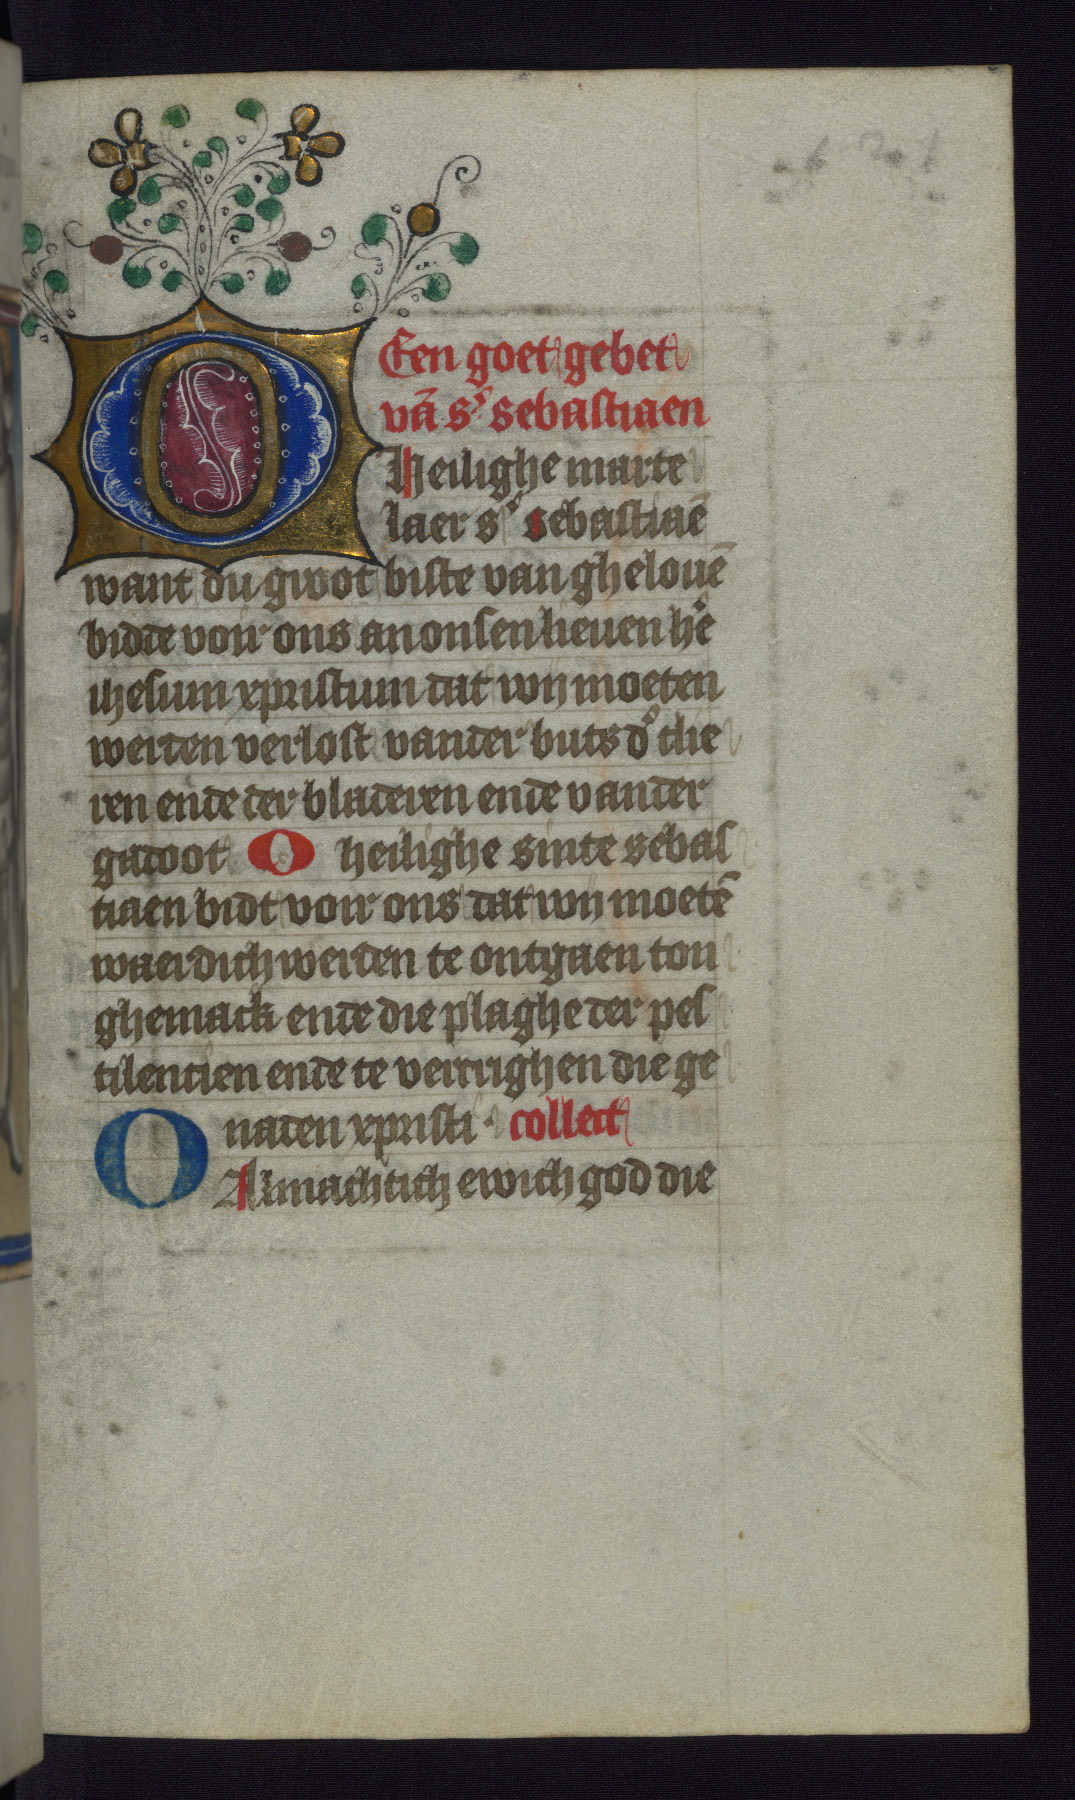 Een goet gebet
vā s' sebastiaen
O Heilighe marte
laer s' sebastiaē
want du groot biste van ghelouē
bidde voir ons an onsen lieuen hē
ihesum xpristum dat wij moeten
werden verlost vander buts d' clie
ren ende der bladeren ende vander
gadoot O heilighe sinte sebas
tiaen bidt voir ons dat wij moetē
waerdich werden te ontgaen ton
ghemack ende die plaghe der pes
tilencien ende te vercrighen die ge
naden xpristi · collect
O Almachtich ewich god die